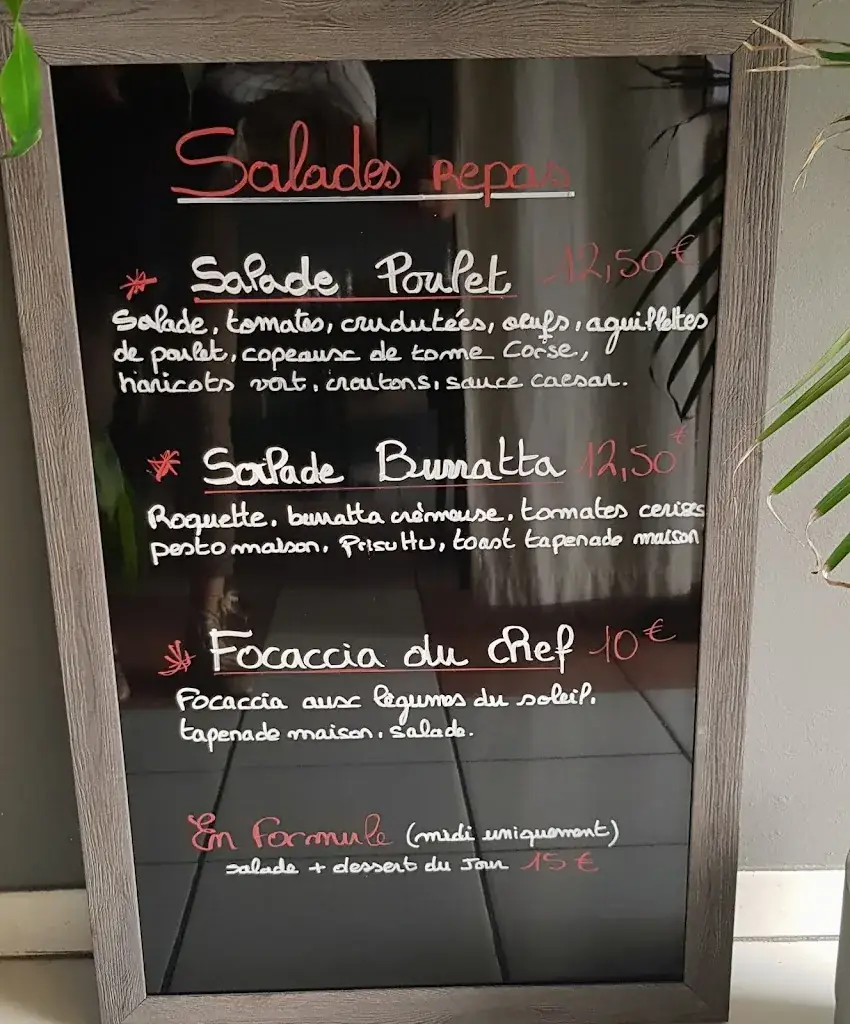 Salades repas
* Salade Poulet 12,50€
Salade, tomates, crudutées, œufs, aguillettes
de poulet, copeaux de tome Corse,
haricots vert, croutons, sauce caesar.
* Salade Burratta 12,50€
Roquette, burratta crémeuse, tomates cerises
pesto maison, Prisuttu, toast tapenade maison
* Focaccia du chef 10€
Focaccia aux légumes du soleil,
tapenade maison, salade.
En Formule (midi uniquement)
salade + dessert du Jour 15€